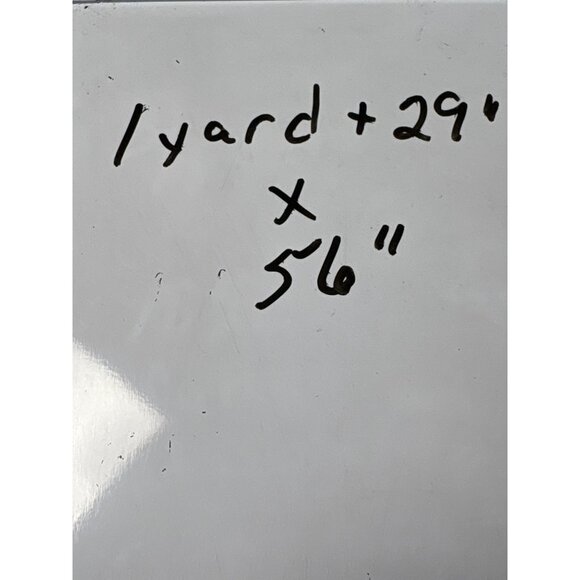 1 yard + 29"
x
56"